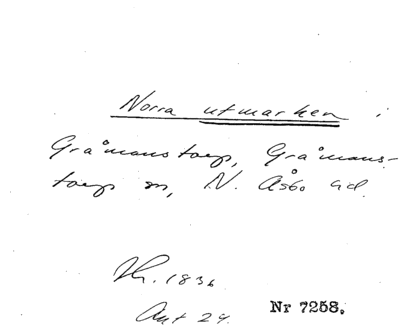 Norra utmarken i
Gråmanstorp, Gråmans-
torp sn, N. Åsbo hd.
Th. 1836
Akt 24.
Nr 7258.